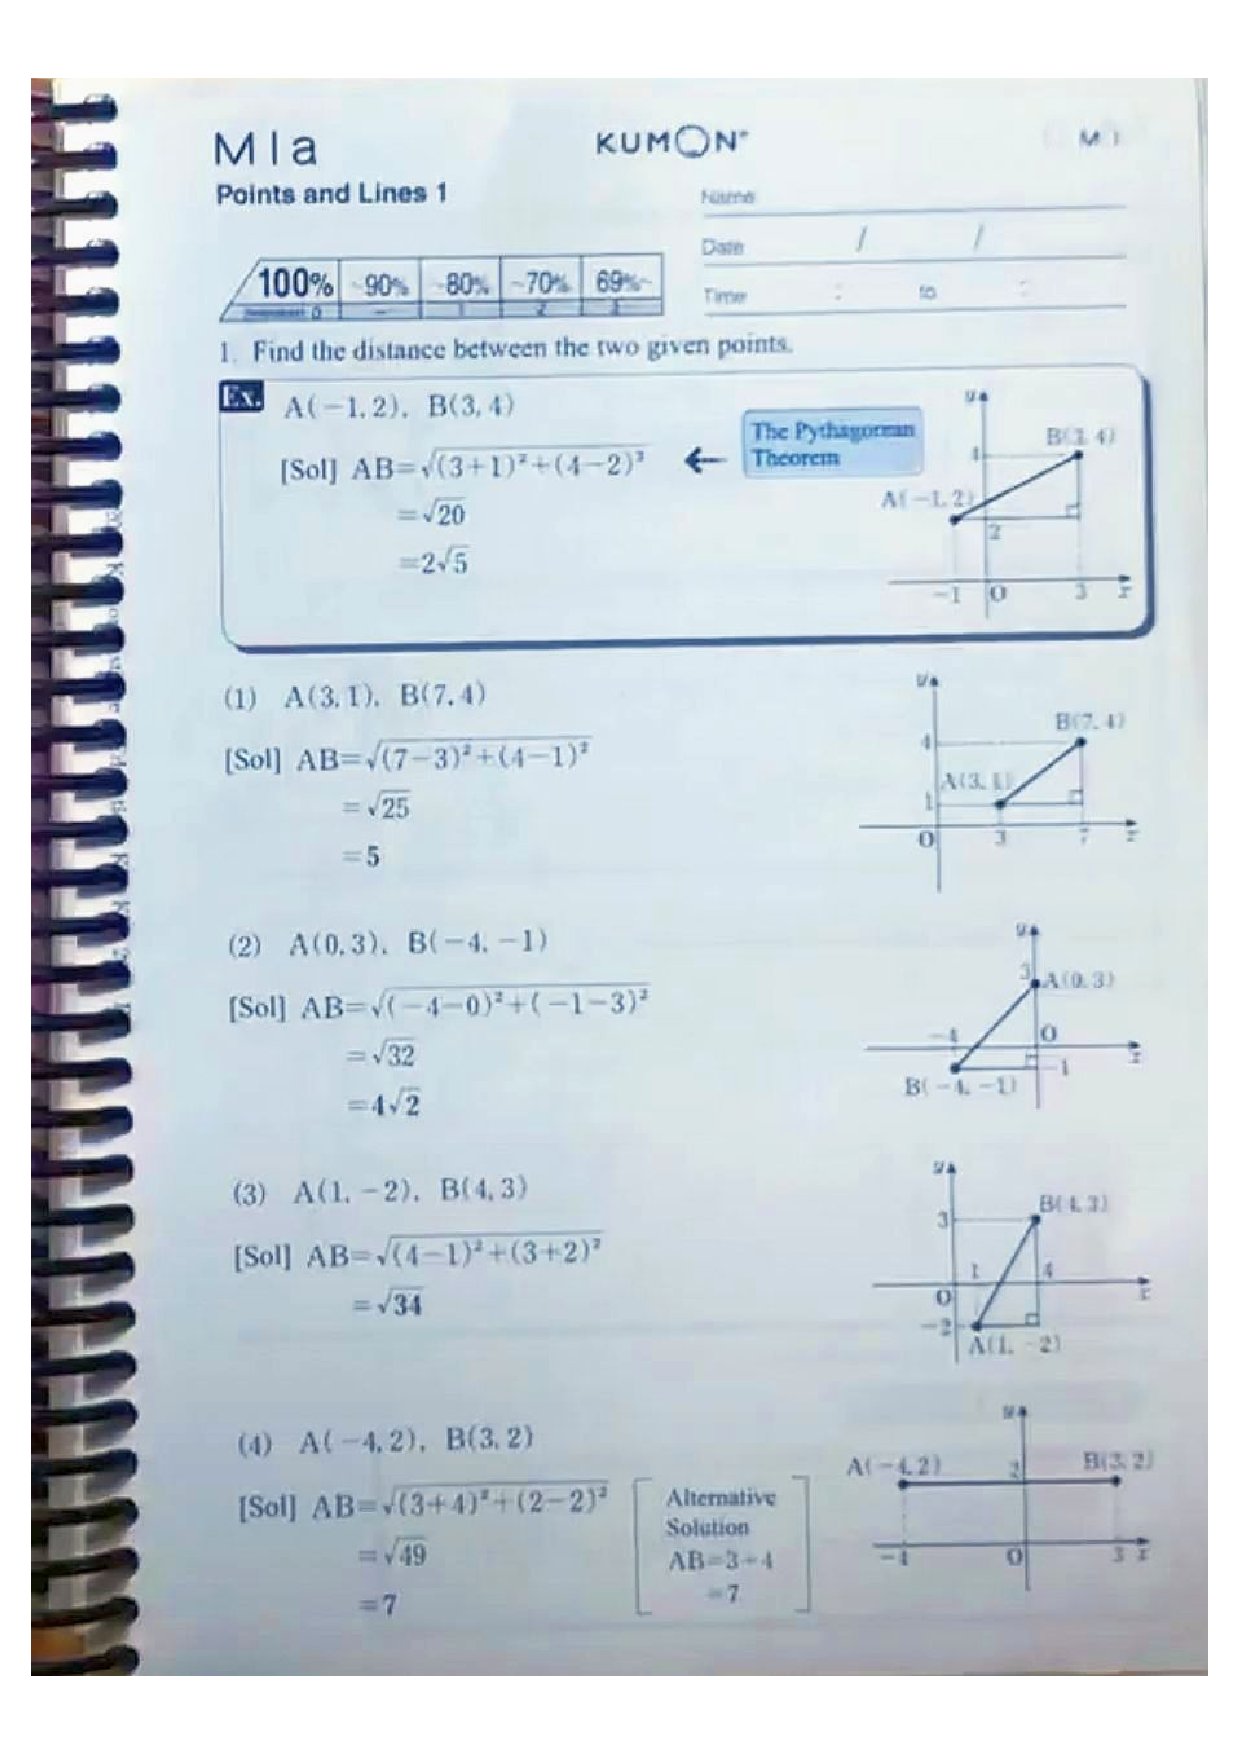 M1a
KUMON
M 1
Points and Lines 1
Name
Date / /
Time : to :
100% ~90% ~80% ~70% 69%~
1. Find the distance between the two given points.
Ex. A(−1, 2), B(3, 4)
[Sol] AB=√(3+1)²+(4−2)²
=√20
=2√5
← The Pythagorean
Theorem
y
B(3, 4)
4
A(−1, 2)
2
−1 O 3 x
(1) A(3, 1), B(7, 4)
[Sol] AB=√(7−3)²+(4−1)²
=√25
=5
y
B(7, 4)
4
A(3, 1)
1
O 3 7 x
(2) A(0, 3), B(−4, −1)
[Sol] AB=√(−4−0)²+(−1−3)²
=√32
=4√2
y
3 A(0, 3)
−4 O x
−1
B(−4, −1)
(3) A(1, −2), B(4, 3)
[Sol] AB=√(4−1)²+(3+2)²
=√34
y
B(4, 3)
3
1 4
O x
−2
A(1, −2)
(4) A(−4, 2), B(3, 2)
[Sol] AB=√(3+4)²+(2−2)²
=√49
=7
Alternative
Solution
AB=3+4
=7
y
A(−4, 2) 2 B(3, 2)
−4 O 3 x